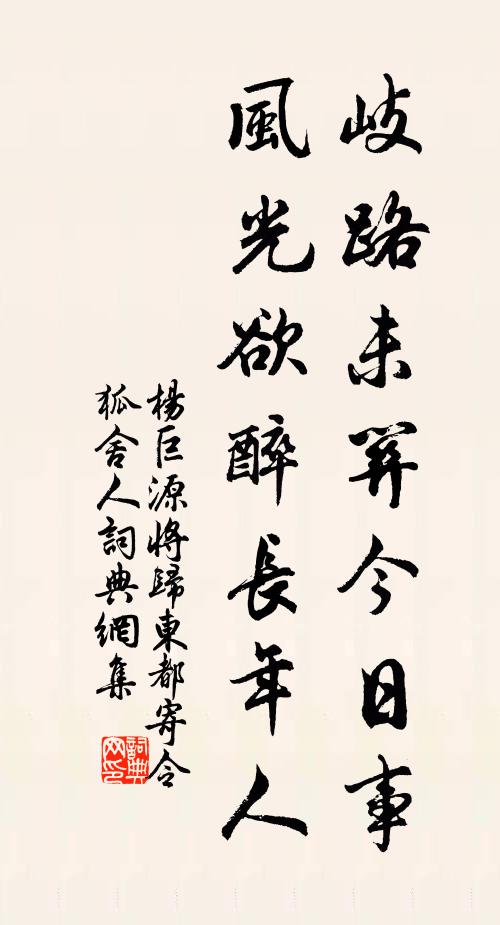 歧路未關今日事
風光欲醉長年人
楊巨源將歸東都寄令
狐舍人詞典網集
詞典
网印